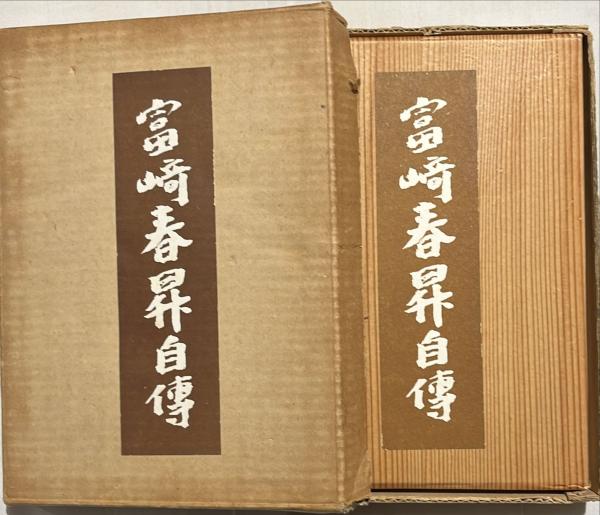 富﨑春昇自傳
富﨑春昇自傳